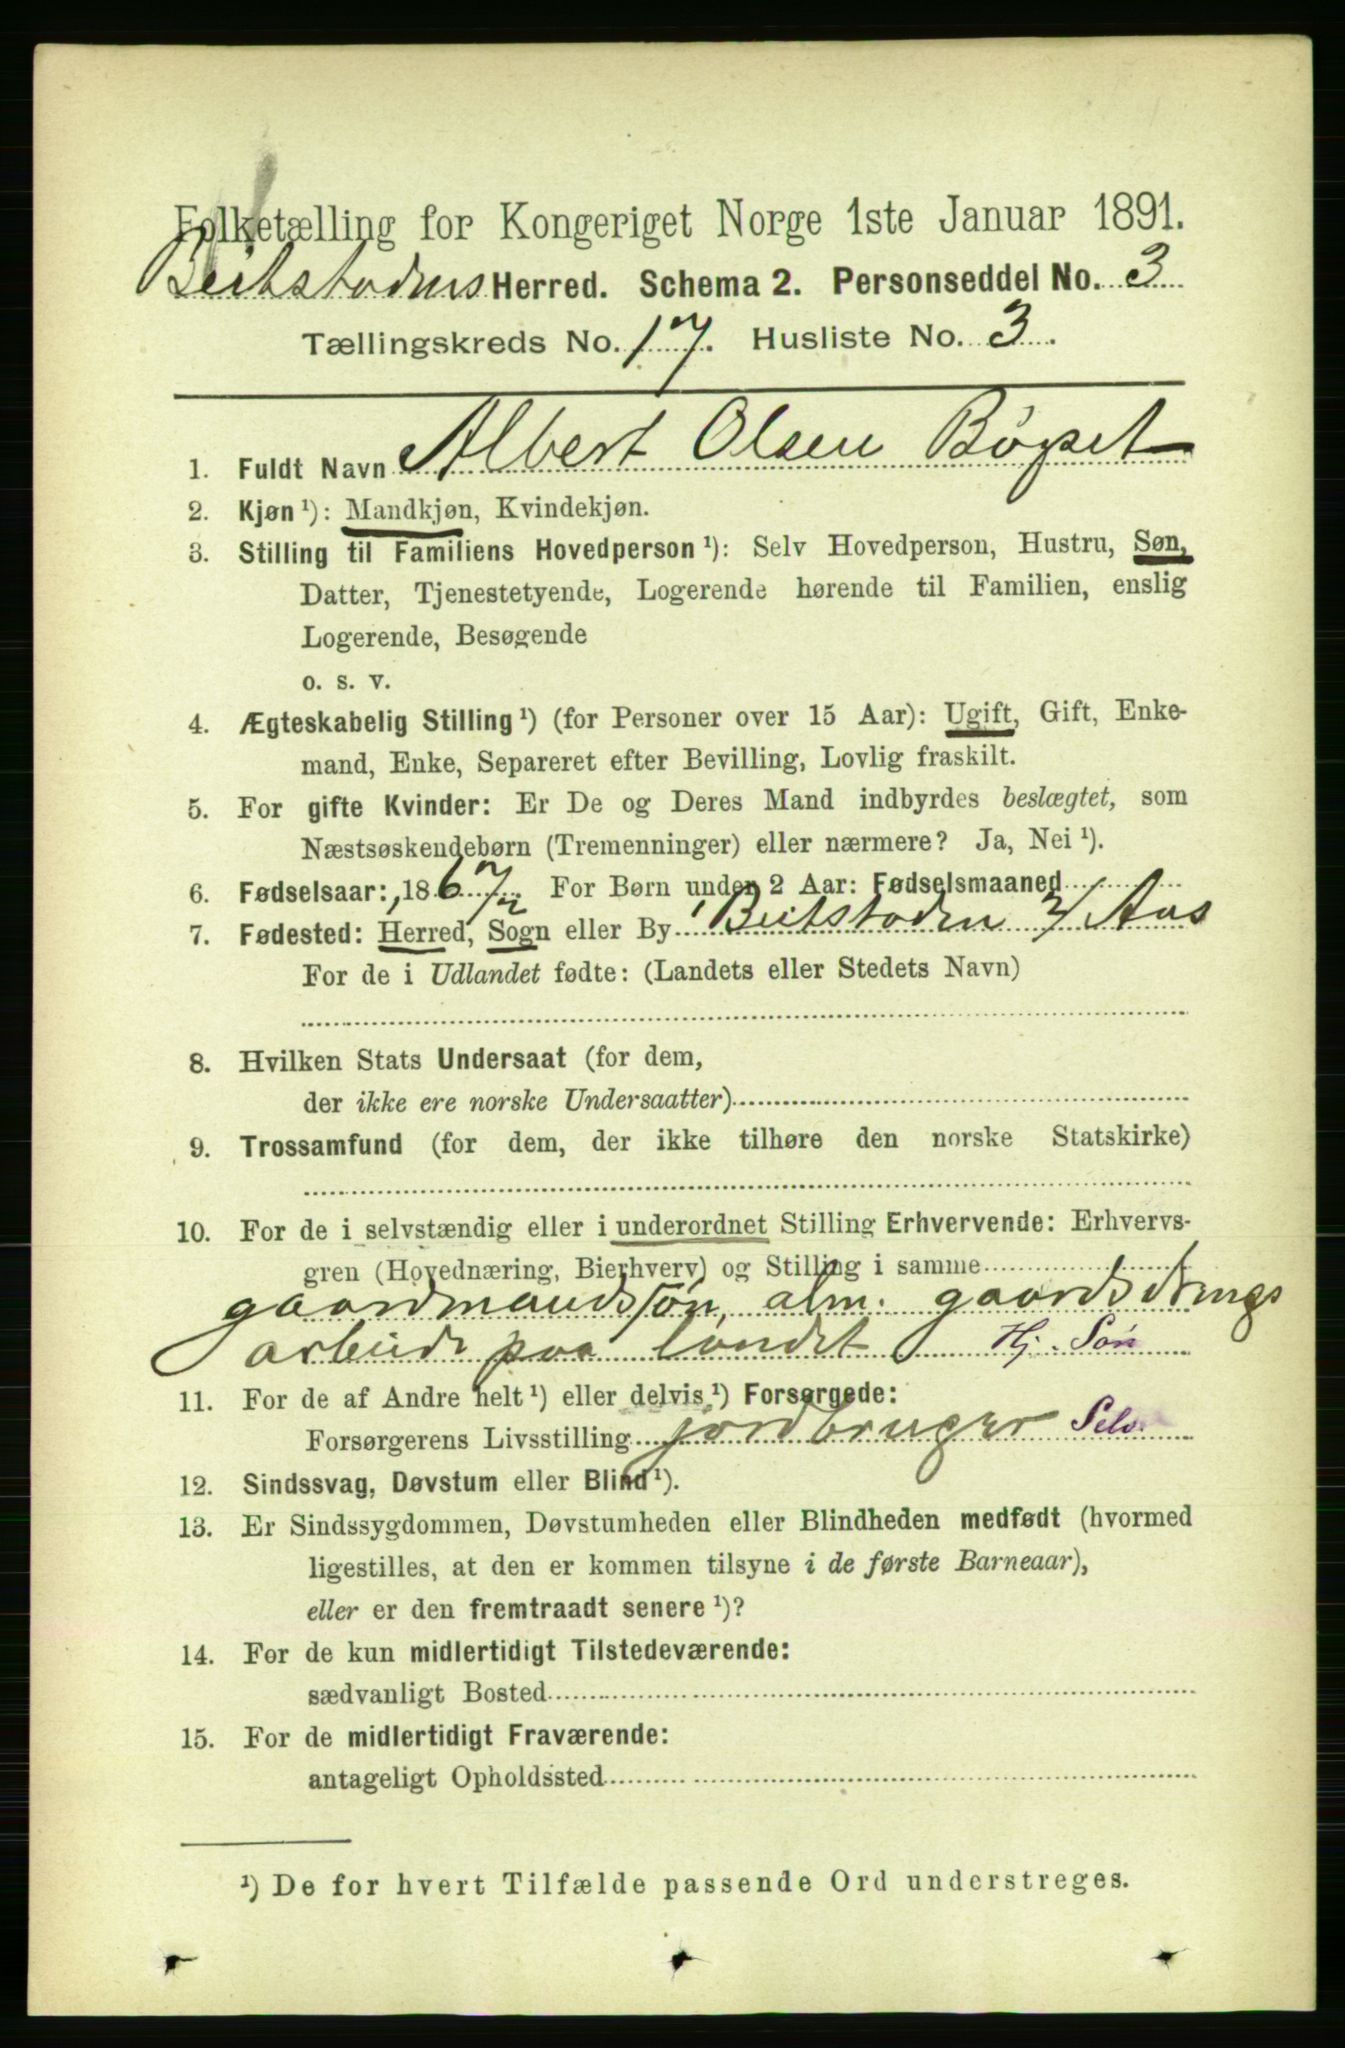 Folketælling for Kongeriget Norge 1ste Januar 1891.
Beitstadens Herred. Schema 2. Personseddel No. 3
Tællingskreds No. 17. Husliste No. 3.
1. Fuldt Navn Albert Olsen Bøgset
2. Kjøn ¹): Mandkjøn, Kvindekjøn.
3. Stilling til Familiens Hovedperson ¹): Selv Hovedperson, Hustru, Søn,
Datter, Tjenestetyende, Logerende hørende til Familien, enslig
Logerende, Besøgende
o. s. v.
4. Ægteskabelig Stilling ¹) (for Personer over 15 Aar): Ugift, Gift, Enke-
mand, Enke, Separeret efter Bevilling, Lovlig fraskilt.
5. For gifte Kvinder: Er De og Deres Mand indbyrdes beslægtet, som
Næstsøskendebørn (Tremenninger) eller nærmere? Ja, Nei ¹).
6. Fødselsaar: 1867 For Børn under 2 Aar: Fødselsmaaned
7. Fødested: Herred, Sogn eller By Beitstaden
For de i Udlandet fødte: (Landets eller Stedets Navn)
8. Hvilken Stats Undersaat (for dem,
der ikke ere norske Undersaatter)
9. Trossamfund (for dem, der ikke tilhøre den norske Statskirke)
10. For de i selvstændig eller i underordnet Stilling Erhvervende: Erhvervs-
gren (Hovednæring, Bierhverv) og Stilling i samme
gaardmandssøn, alm. gaardsdrengs
arbeide paa landet Hj. Søn
11. For de af Andre helt ¹) eller delvis ¹) Forsørgede:
Forsørgerens Livsstilling jordbruger Selv
12. Sindssvag, Døvstum eller Blind ¹).
13. Er Sindssygdommen, Døvstumheden eller Blindheden medfødt (hvormed
ligestilles, at den er kommen tilsyne i de første Barneaar),
eller er den fremtraadt senere ¹)?
14. For de kun midlertidigt Tilstedeværende:
sædvanligt Bosted
15. For de midlertidigt Fraværende:
antageligt Opholdssted
¹) De for hvert Tilfælde passende Ord understreges.